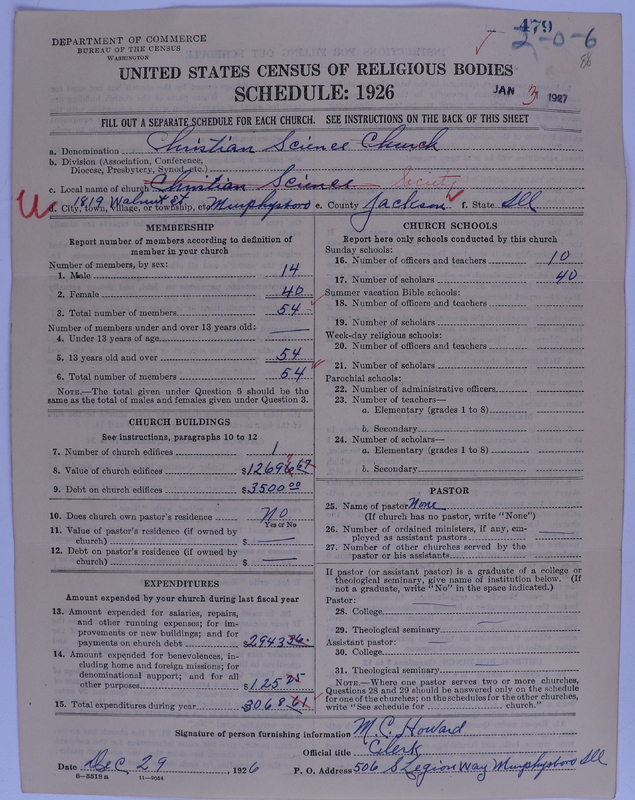 479
2-0-6
86
DEPARTMENT OF COMMERCE
BUREAU OF THE CENSUS
WASHINGTON
UNITED STATES CENSUS OF RELIGIOUS BODIES
SCHEDULE: 1926
JAN 3 1927
FILL OUT A SEPARATE SCHEDULE FOR EACH CHURCH. SEE INSTRUCTIONS ON THE BACK OF THIS SHEET
a. Denomination Christian Science Church
b. Division (Association, Conference,
Diocese, Presbytery, Synod, etc.)
c. Local name of church Christian Science Society
d. City, town, village, or township, etc. 1819 Walnut St. Murphysboro e. County Jackson f. State Ill
MEMBERSHIP
Report number of members according to definition of
member in your church
Number of members, by sex:
1. Male 14
2. Female 40
3. Total number of members 54
Number of members under and over 13 years old:
4. Under 13 years of age
5. 13 years old and over 54
6. Total number of members 54
NOTE.—The total given under Question 6 should be the
same as the total of males and females given under Question 3.
CHURCH BUILDINGS
See instructions, paragraphs 10 to 12
7. Number of church edifices 1
8. Value of church edifices $12696 67
9. Debt on church edifices $3500 00
10. Does church own pastor's residence No
Yes or No
11. Value of pastor's residence (if owned by
church) $
12. Debt on pastor's residence (if owned by
church) $
EXPENDITURES
Amount expended by your church during last fiscal year
13. Amount expended for salaries, repairs,
and other running expenses; for im-
provements or new buildings; and for
payments on church debt $2943 36
14. Amount expended for benevolences, in-
cluding home and foreign missions; for
denominational support; and for all
other purposes $125 25
15. Total expenditures during year 3068 61
CHURCH SCHOOLS
Report here only schools conducted by this church
Sunday schools:
16. Number of officers and teachers 10
17. Number of scholars 40
Summer vacation Bible schools:
18. Number of officers and teachers
19. Number of scholars
Week-day religious schools:
20. Number of officers and teachers
21. Number of scholars
Parochial schools:
22. Number of administrative officers
23. Number of teachers—
a. Elementary (grades 1 to 8)
b. Secondary
24. Number of scholars—
a. Elementary (grades 1 to 8)
b. Secondary
PASTOR
25. Name of pastor None
(If church has no pastor, write "None")
26. Number of ordained ministers, if any, em-
ployed as assistant pastors
27. Number of other churches served by the
pastor or his assistants
If pastor (or assistant pastor) is a graduate of a college or
theological seminary, give name of institution below. (If
not a graduate, write "No" in the space indicated.)
Pastor:
28. College
29. Theological seminary
Assistant pastor:
30. College
31. Theological seminary
NOTE.—Where one pastor serves two or more churches,
Questions 28 and 29 should be answered only on the schedule
for one of the churches; on the schedules for the other churches,
write "See schedule for church."
Signature of person furnishing information M. C. Howard
Official title Clerk
Date Dec. 29, 1926 P. O. Address 506 S Legion Way Murphysboro Ill
8-5518 a 11-9064